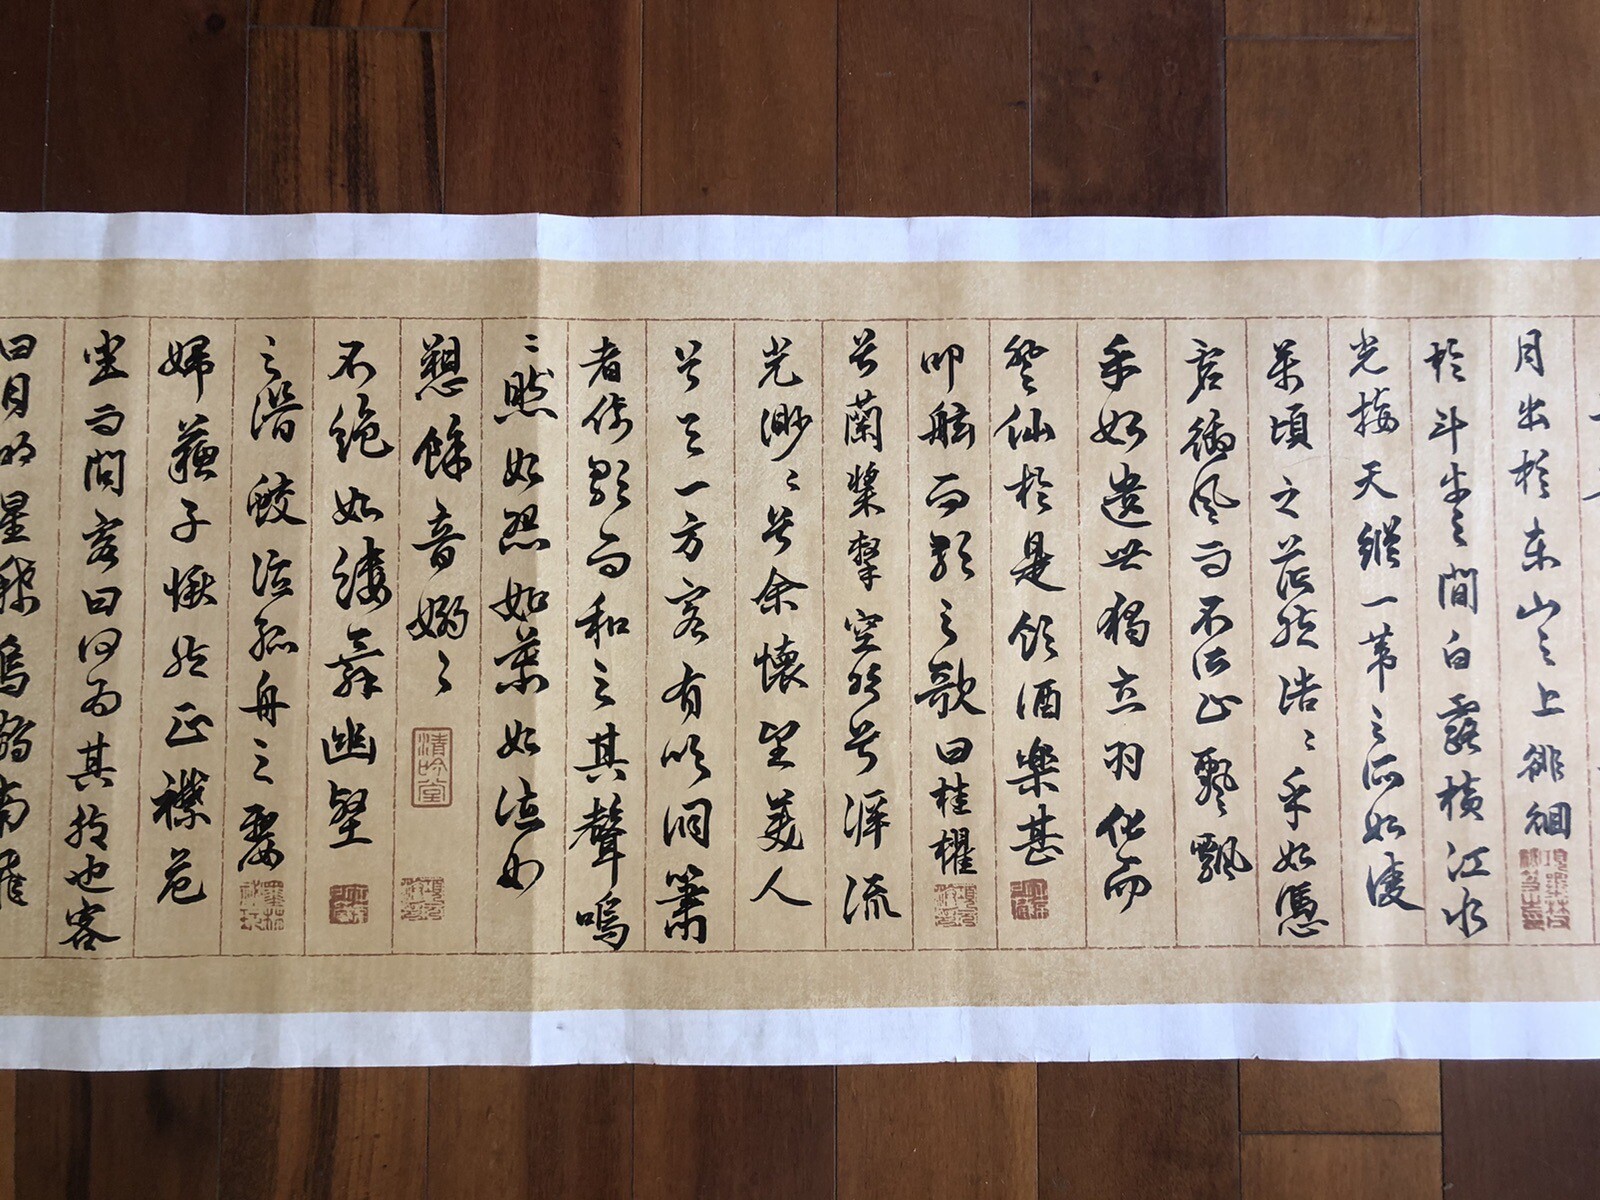 月出於東山之上徘徊
於斗牛之間白露橫江水
光接天縱一葦之所如凌
萬頃之茫然浩〻乎如憑
虛御風而不知其所止飄飄
乎如遺世獨立羽化而
登仙於是飲酒樂甚
叩舷而歌之歌曰桂櫂
兮蘭槳擊空明兮泝流
光渺〻兮余懷望美人
兮天一方客有吹洞簫
者倚歌而和之其聲嗚
〻然如怨如慕如泣如
愬餘音嫋〻
清吟堂
不絕如縷舞幽壑
之潛蛟泣孤舟之嫠
婦蘇子愀然正襟危
坐而問客曰何為其然也客
曰月明星稀烏鵲南飛